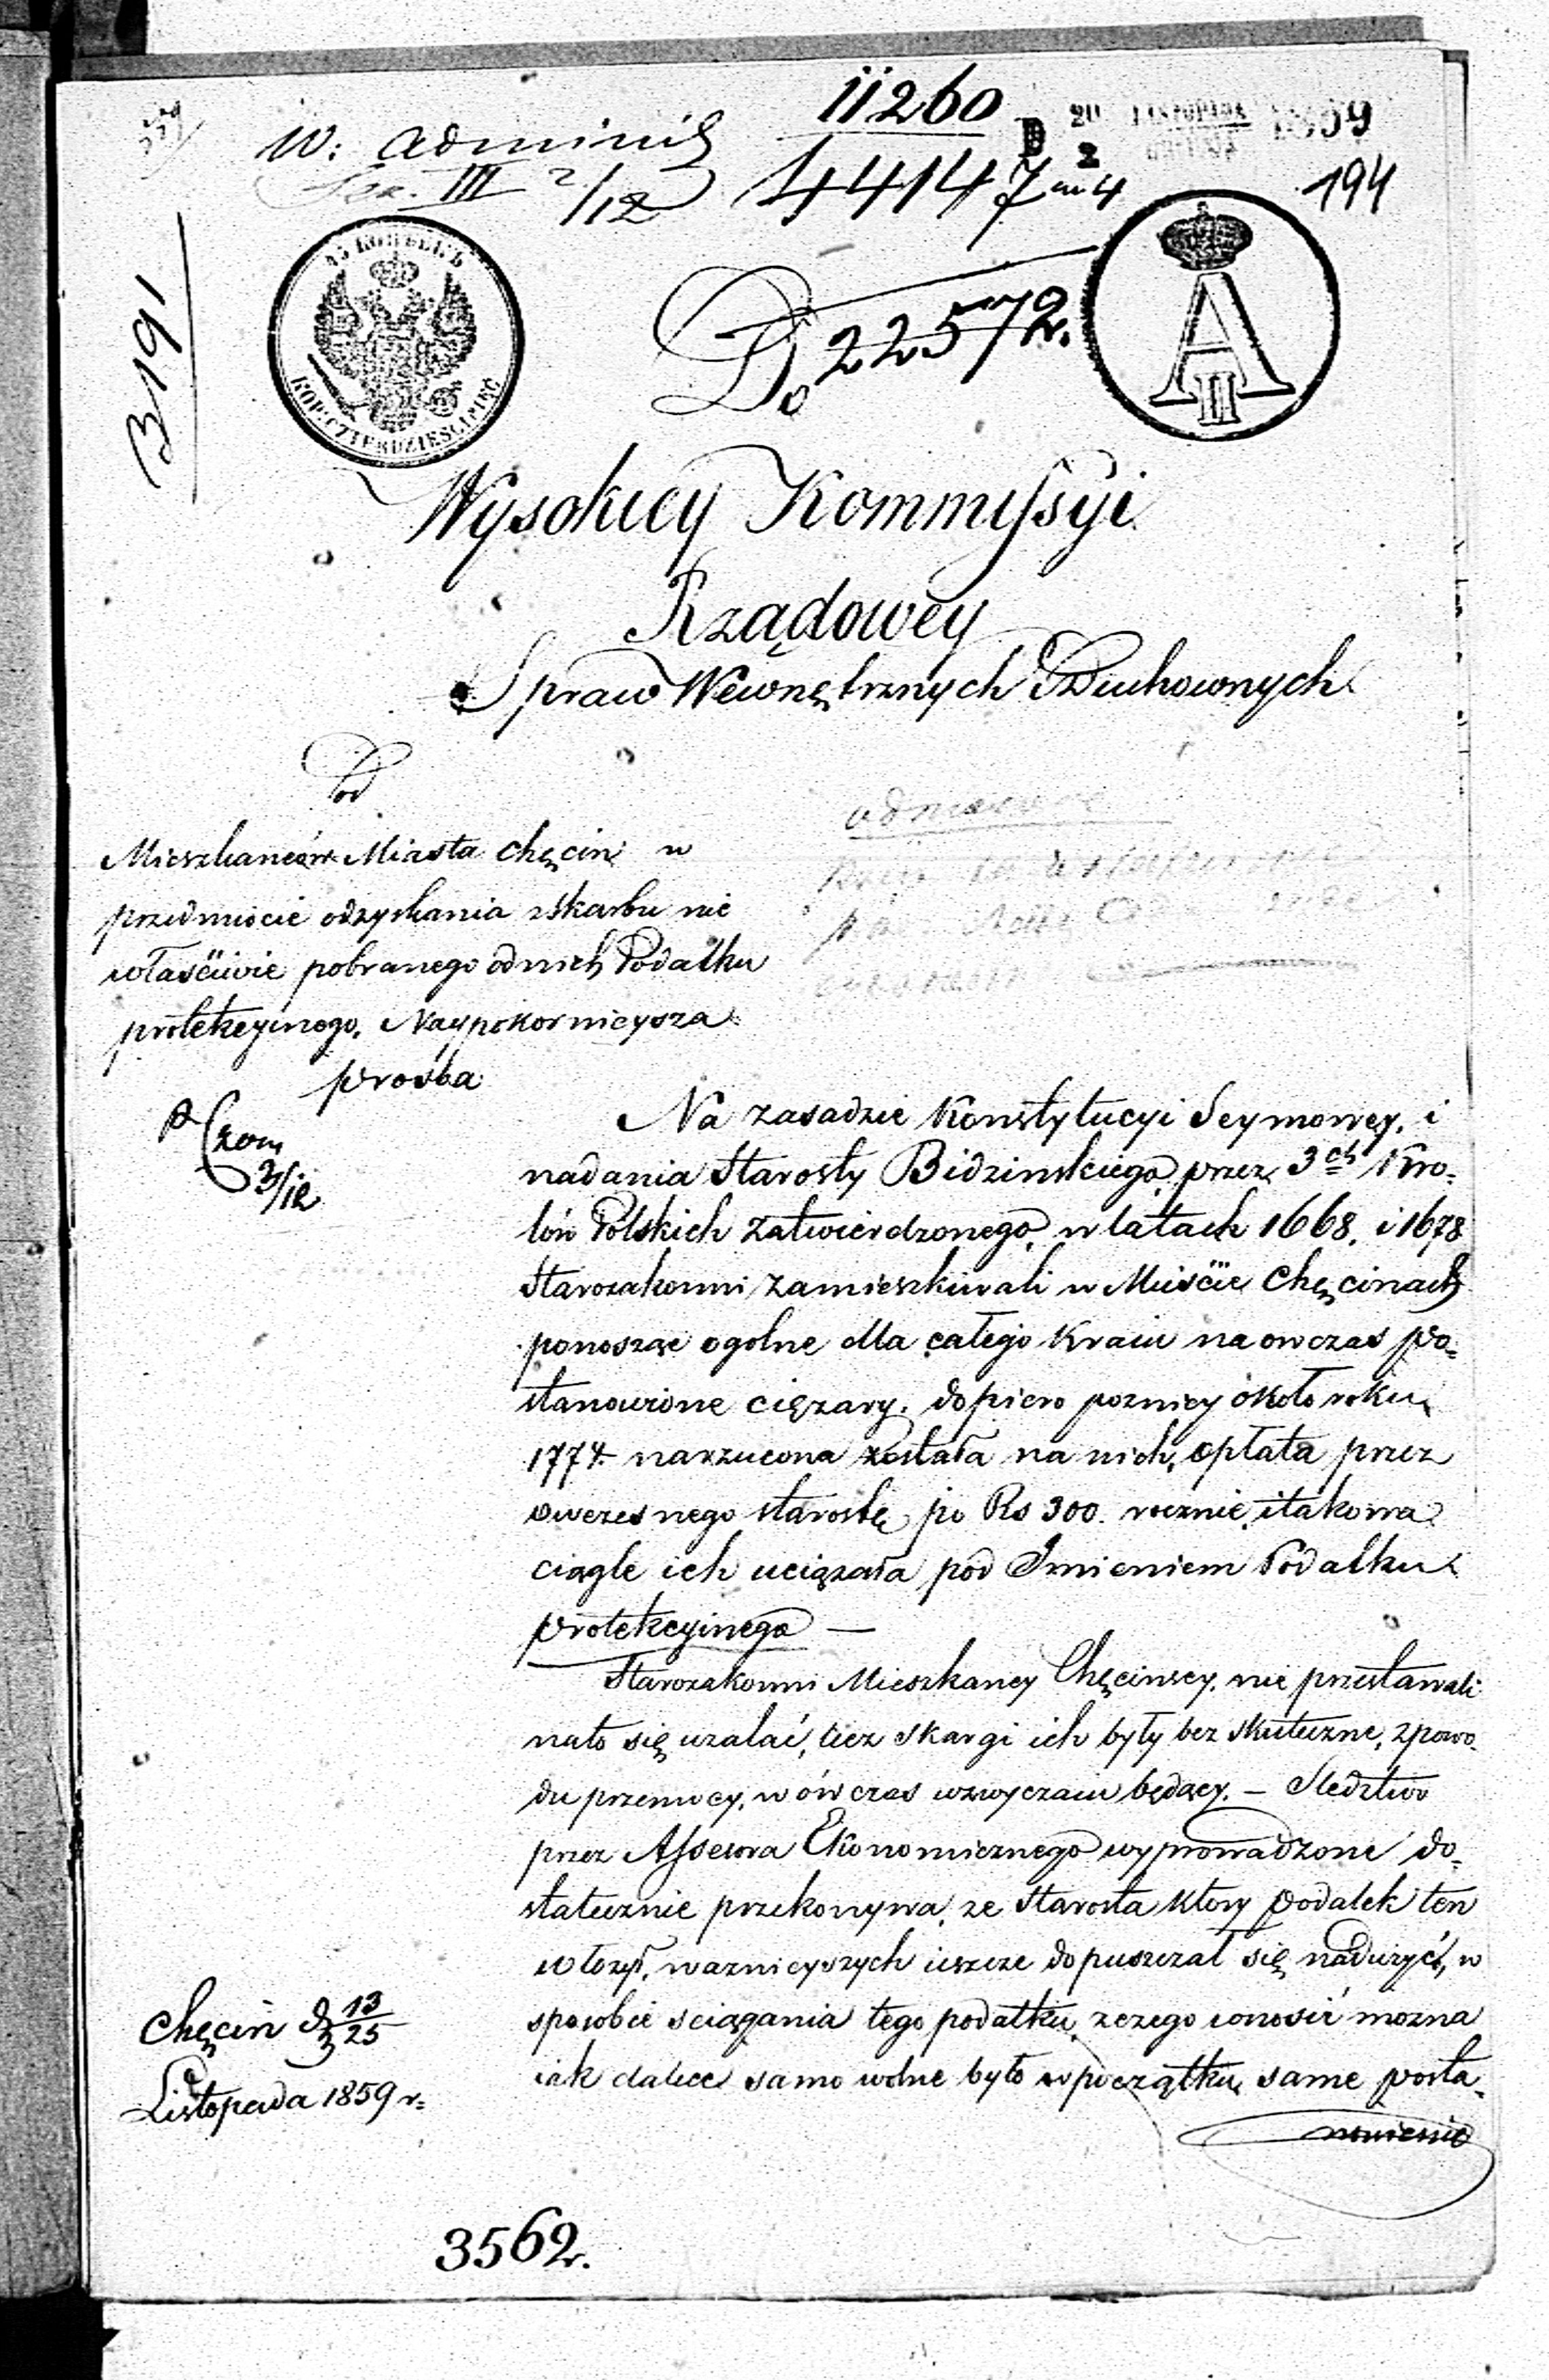 11260
W: Administ
Sek. III 2/12
44147 4
20 LISTOPADA 1859
2 GRUDNIA
194
3191
45 KOPIEEKЪ
KOP: CZTERDZIEŚCI PIĘĆ
A II
Do 22572.
Wysokiey Kommissyi
Rządowey
Spraw Wewnętrznych i Duchownych
od
Mieszkańców Miasta Chęcin w
przedmiocie odzyskania z Skarbu nie
właściwie pobranego od nich Podatku
protekcyinego, Naypokornieysza
prośba
3/12
Na zasadzie Konstytucyi Seymowey, i
nadania Starosty Bidzinskiego przez 3ch Kro=
lów Polskich zatwierdzonego w latach 1668. i 1678
Starozakonni zamieszkiwali w Mieście Chęcinach
ponosząc ogolne dla całego Kraiu na owczas po=
stanowione ciężary. dopiero pozniey około roku
1774. narzucona została na nich, opłata przez
owczesnego starostę po Rs 300. rocznie, i takowa
ciągle ich uciążała pod Imieniem Podatku
protekcyinego —
Starozakonni Mieszkancy Chęcinscy, nie przestawali
nato się uzalać, lecz skargi ich były bez skuteczne, z powo=
du przemocy, w ówczas w zwyczaiu będącey. — Sledztwo
przez Assesora Ekonomicznego wyprowadzone do=
statecznie przekonywa, ze Starosta ktory podatek ten
włozył, waznieyszych ieszcze dopuszczał się nadużyć, w
sposobie sciągania tego podatku, z czego wnosić mozna
iak dalece samo wolne było w początku, same posta=
nowienie
Chęcin d 13/25
Listopada 1859 r=
3562.